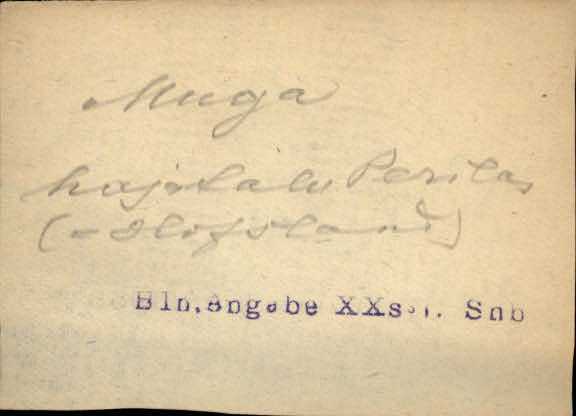 Muga
hajatalu Perilas
(= Olofsland)
Bln,Angabe XXs. Snb